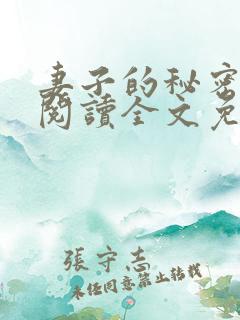 妻子的秘密
閱讀全文免
張守志
未經同意禁止轉載